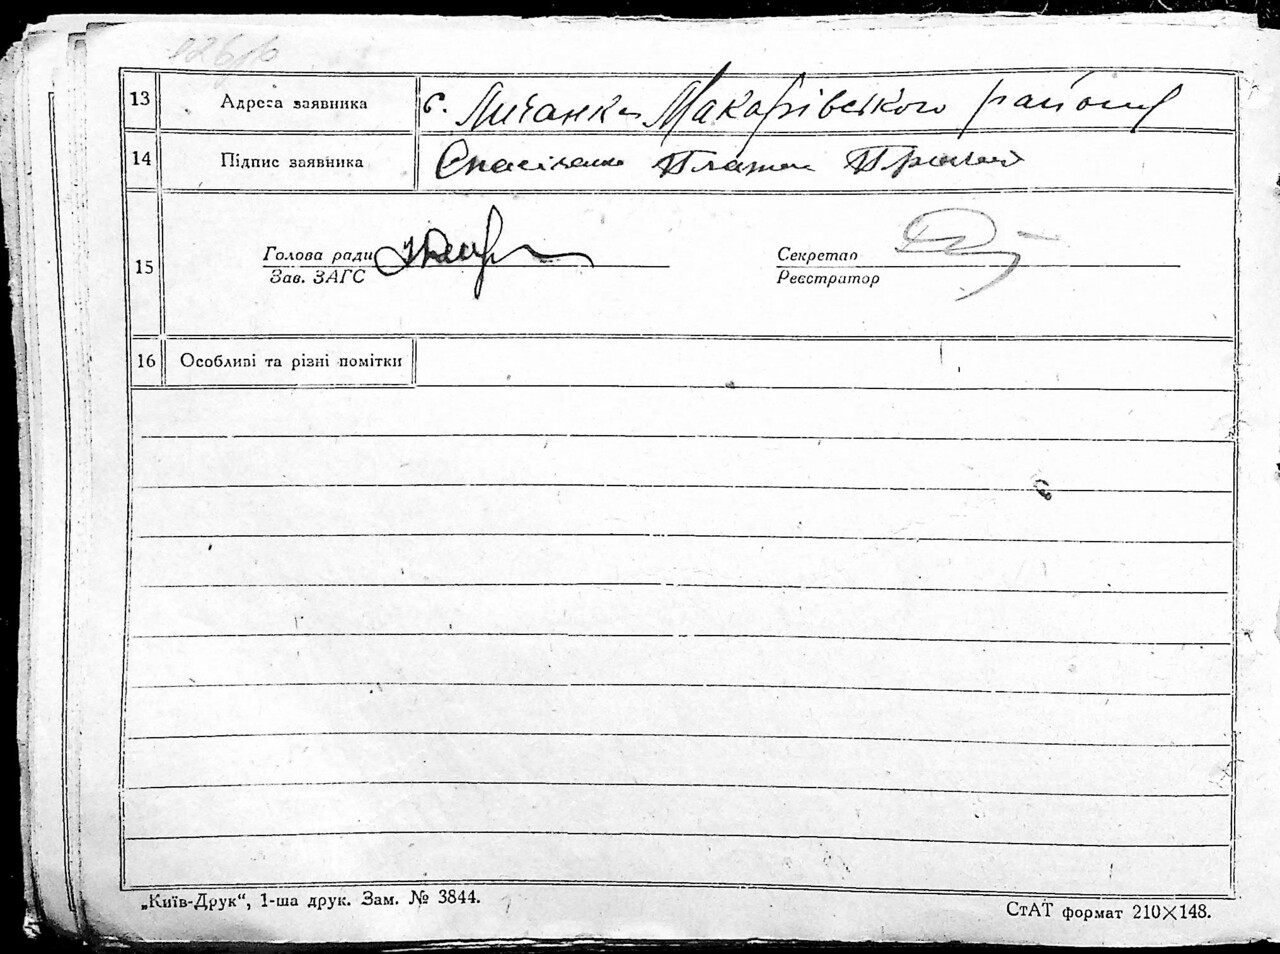 13 Адреса заявника с. Личанка Макарівського району
14 Підпис заявника Платон
15
Голова ради Секретар
Зав. ЗАГС Реєстратор
16 Особливі та різні помітки
„Київ-Друк“, 1-ша друк. Зам. № 3844.
СтАТ формат 210×148.